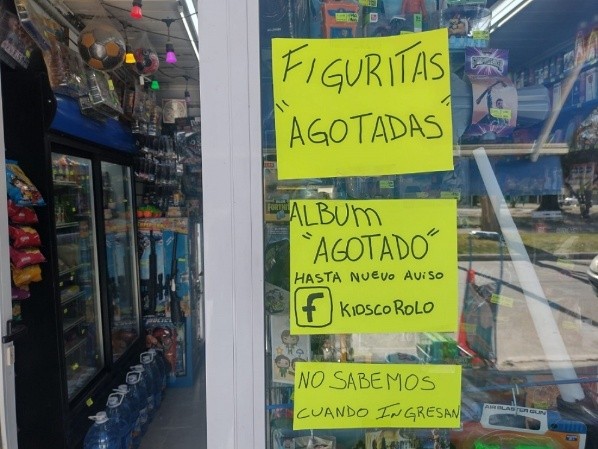 FIGURITAS
"AGOTADAS"
ALBUM
"AGOTADO"
HASTA NUEVO AVISO
f KIOSCO ROLO
NO SABEMOS
CUANDO INGRESAN
AIR BLASTER GUN